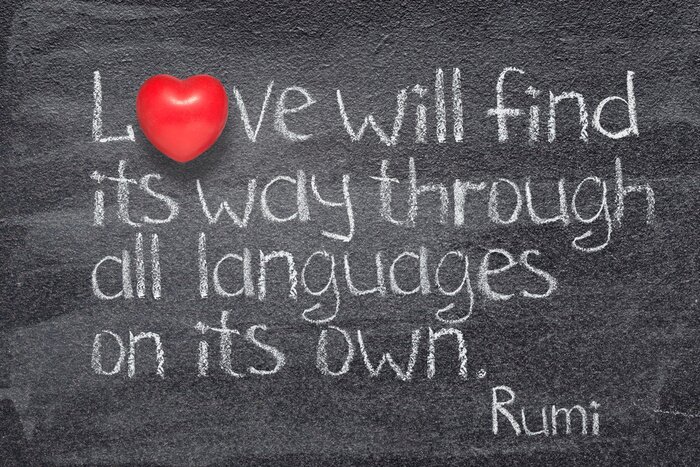 Love will find
its way through
all languages
on its own.
Rumi